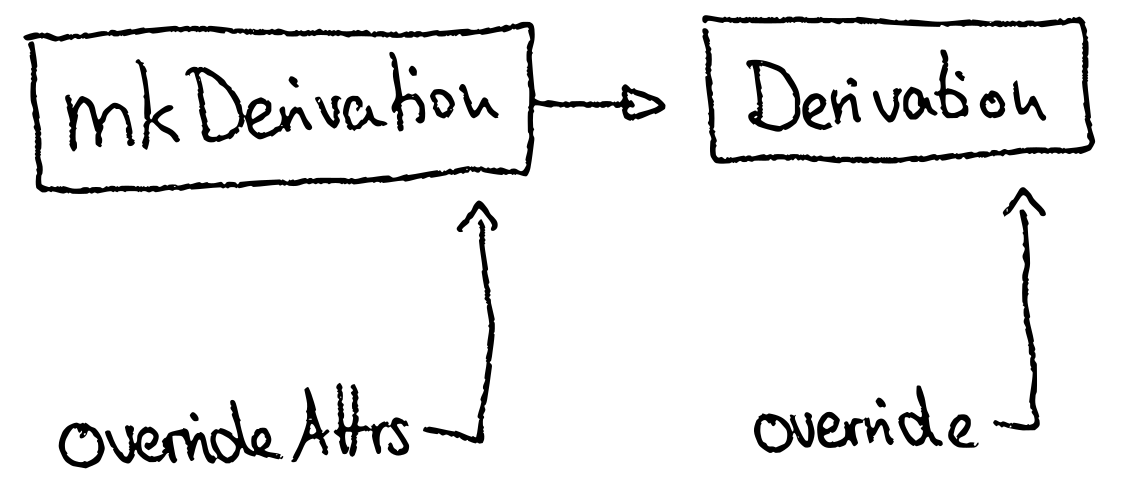 mkDerivation
Derivation
overrideAttrs
override